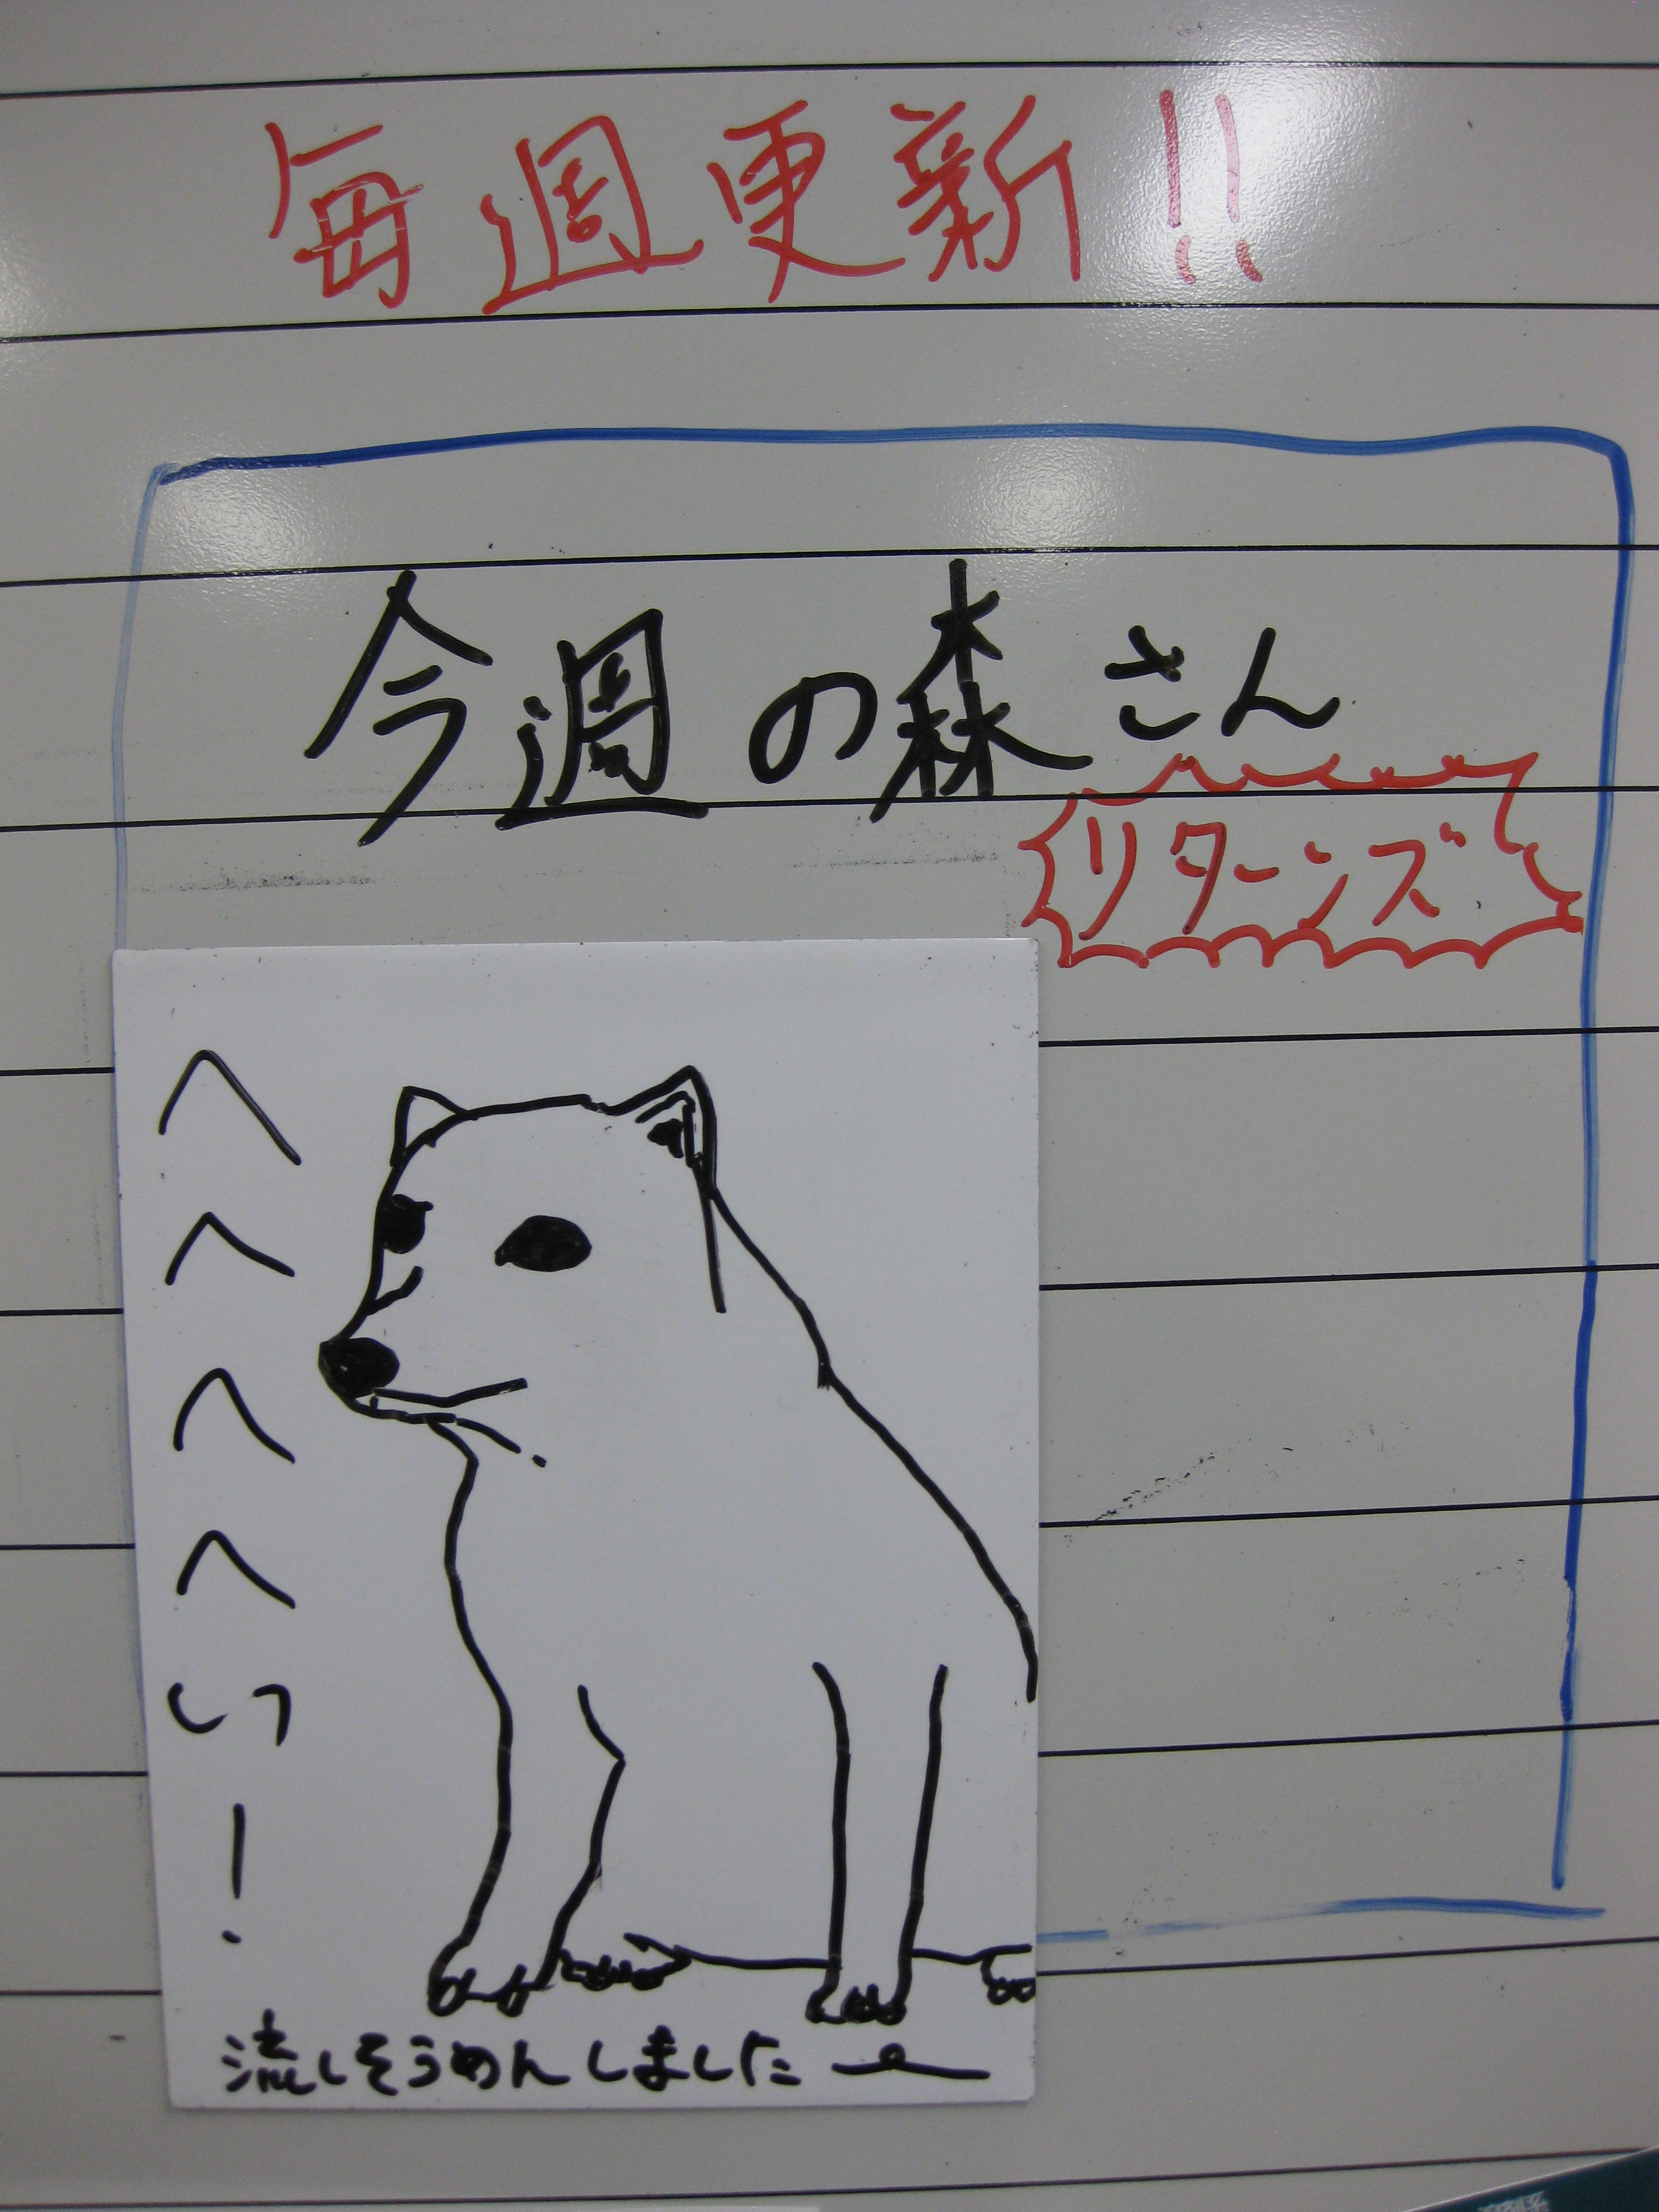 毎週更新!!
今週の森さん
リターンズ
へへへへいっ!
流しそうめんしました